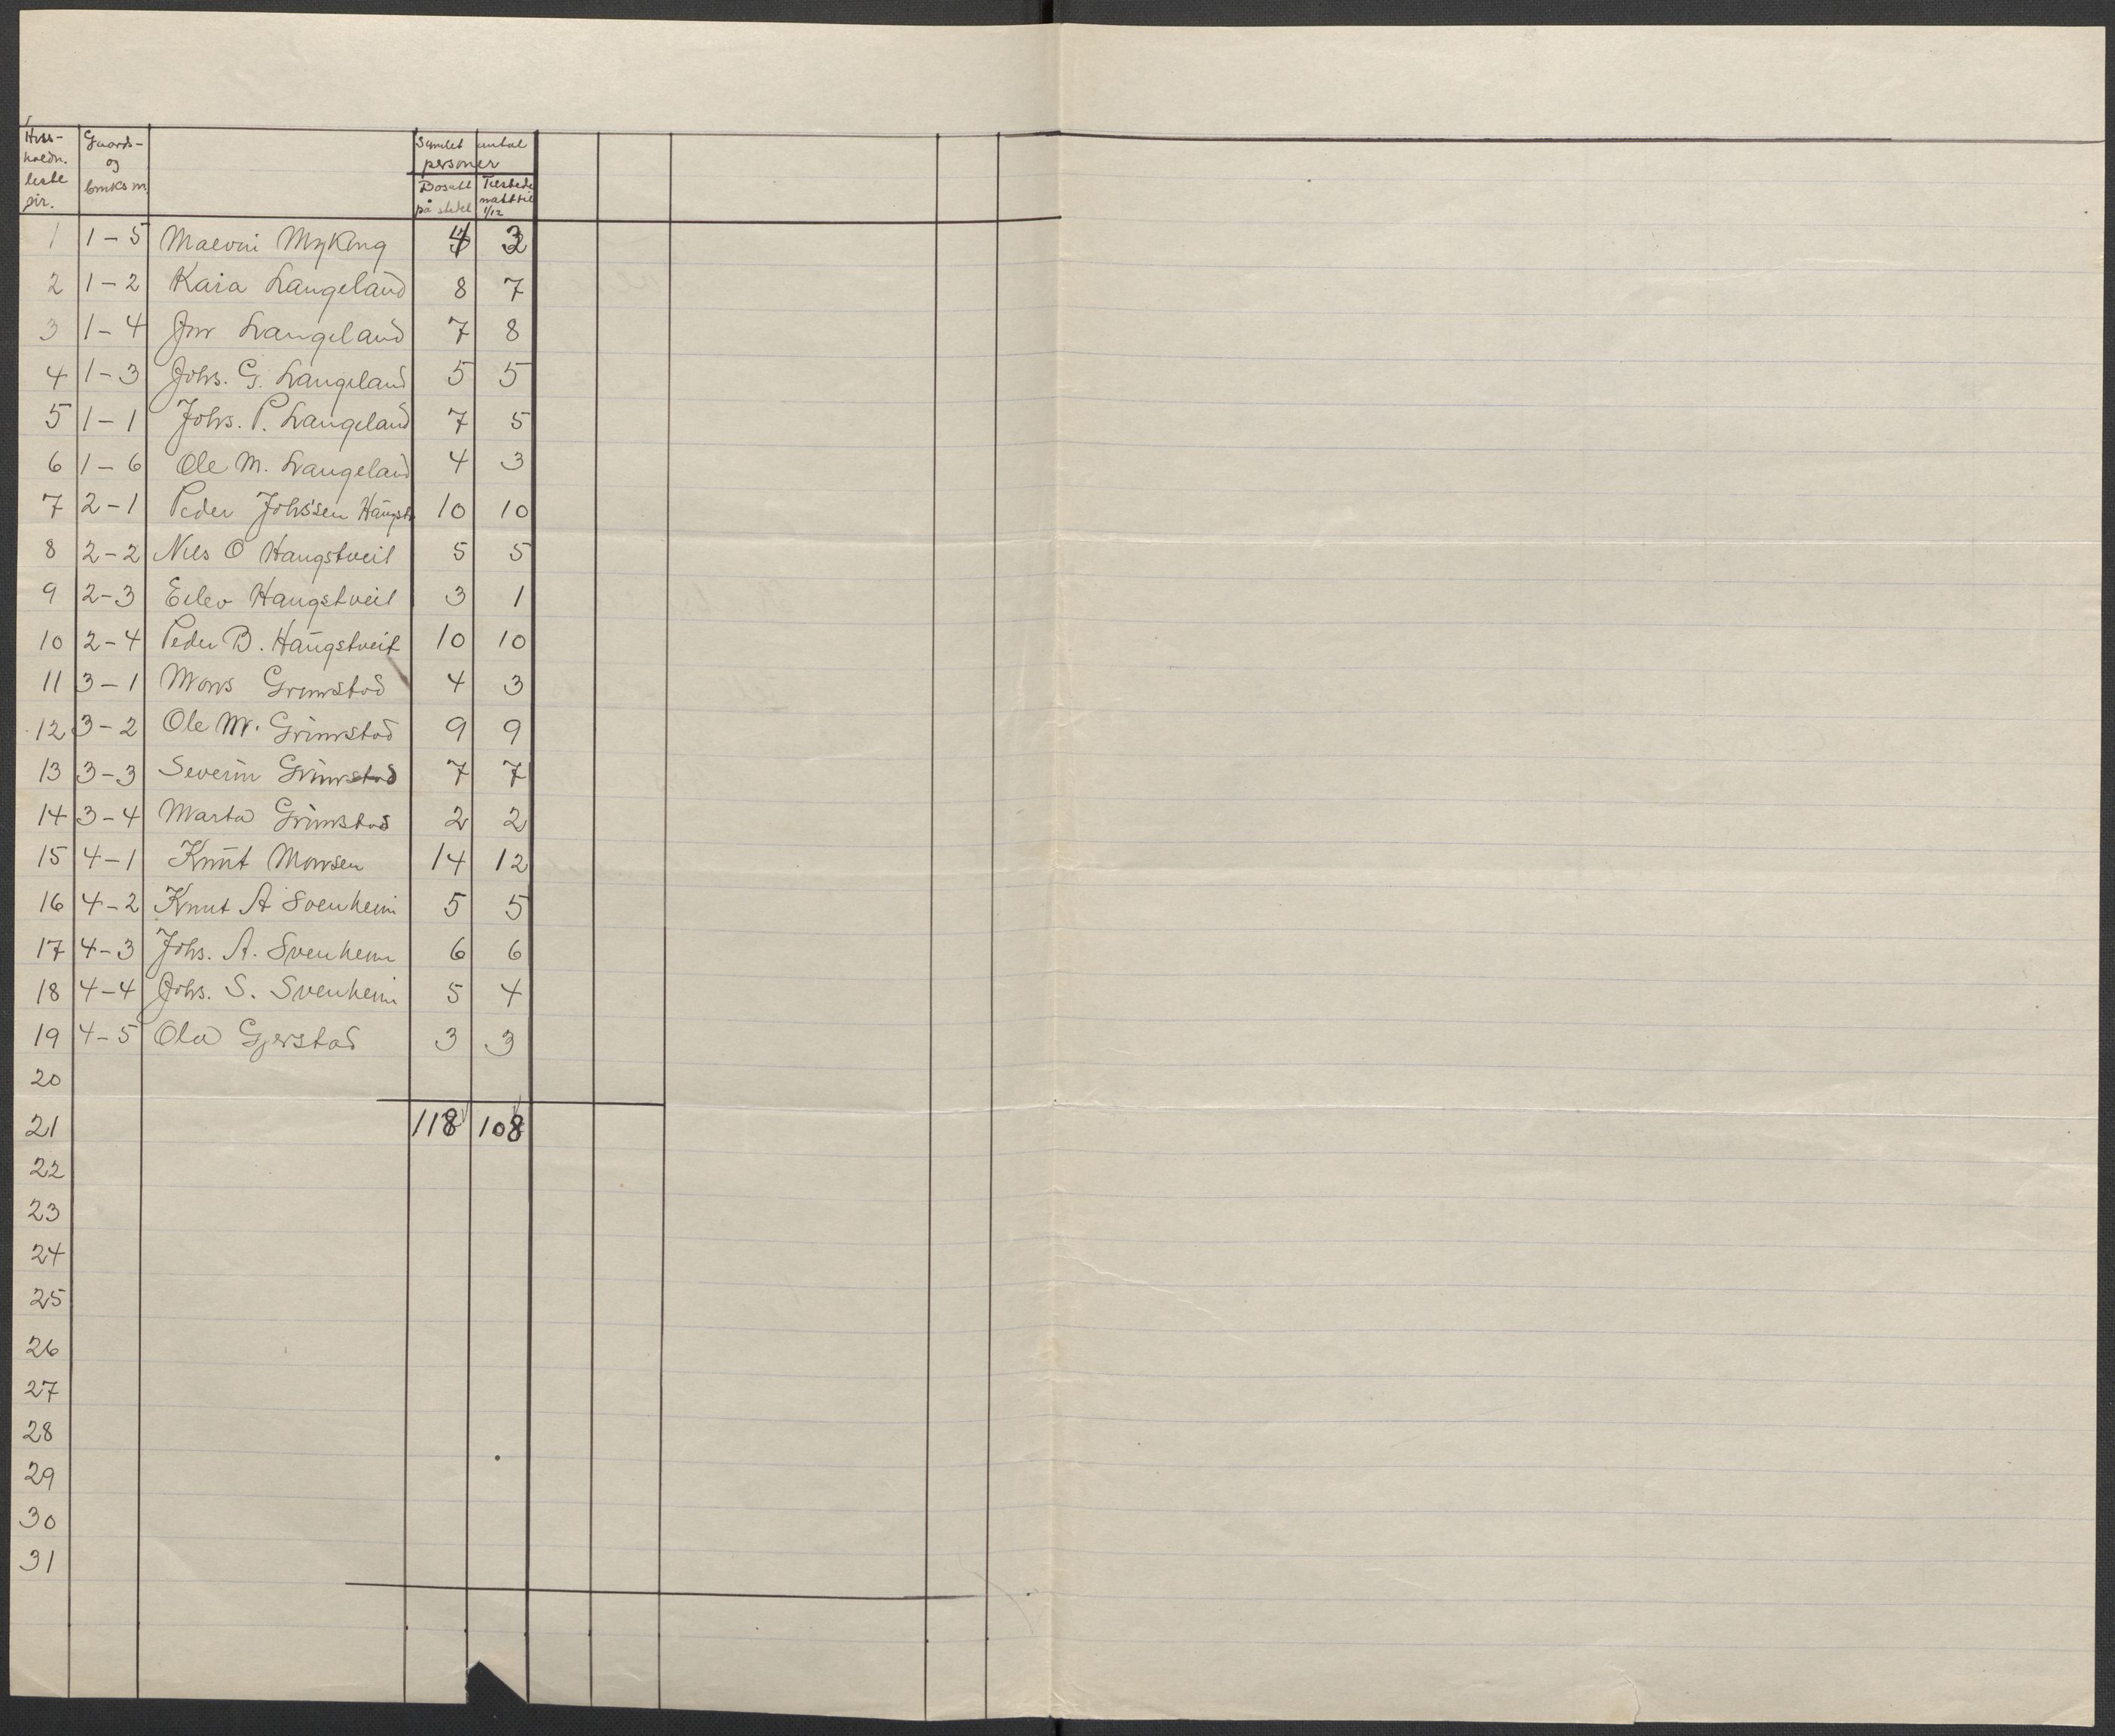 Huss- Gaards- Samlet antal
holdn. og personer
liste bruks nr. Bosatt Tilstede
nr. på stedet natt til 1/12
1 1-5 Malvin Myking 4 3
2 1-2 Kaia Langeland 8 7
3 1-4 Jon Langeland 7 8
4 1-3 Johs. G. Langeland 5 5
5 1-1 Johs. P. Langeland 7 5
6 1-6 Ole M. Langeland 4 3
7 2-1 Peder Johssen Haugst 10 10
8 2-2 Nils O Haugstveit 5 5
9 2-3 Eilev Haugstveit 3 1
10 2-4 Peder B. Haugstveit 10 10
11 3-1 Mons Grimstad 4 3
12 3-2 Ole M. Grimstad 9 9
13 3-3 Severin Grimstad 7 7
14 3-4 Marta Grimstad 2 2
15 4-1 Knut Monsen 14 12
16 4-2 Knut A Svenheim 5 5
17 4-3 Johs. A. Svenheim 6 6
18 4-4 Johs. S. Svenheim 5 4
19 4-5 Ola Gjerstad 3 3
20
21 118 108
22
23
24
25
26
27
28
29
30
31